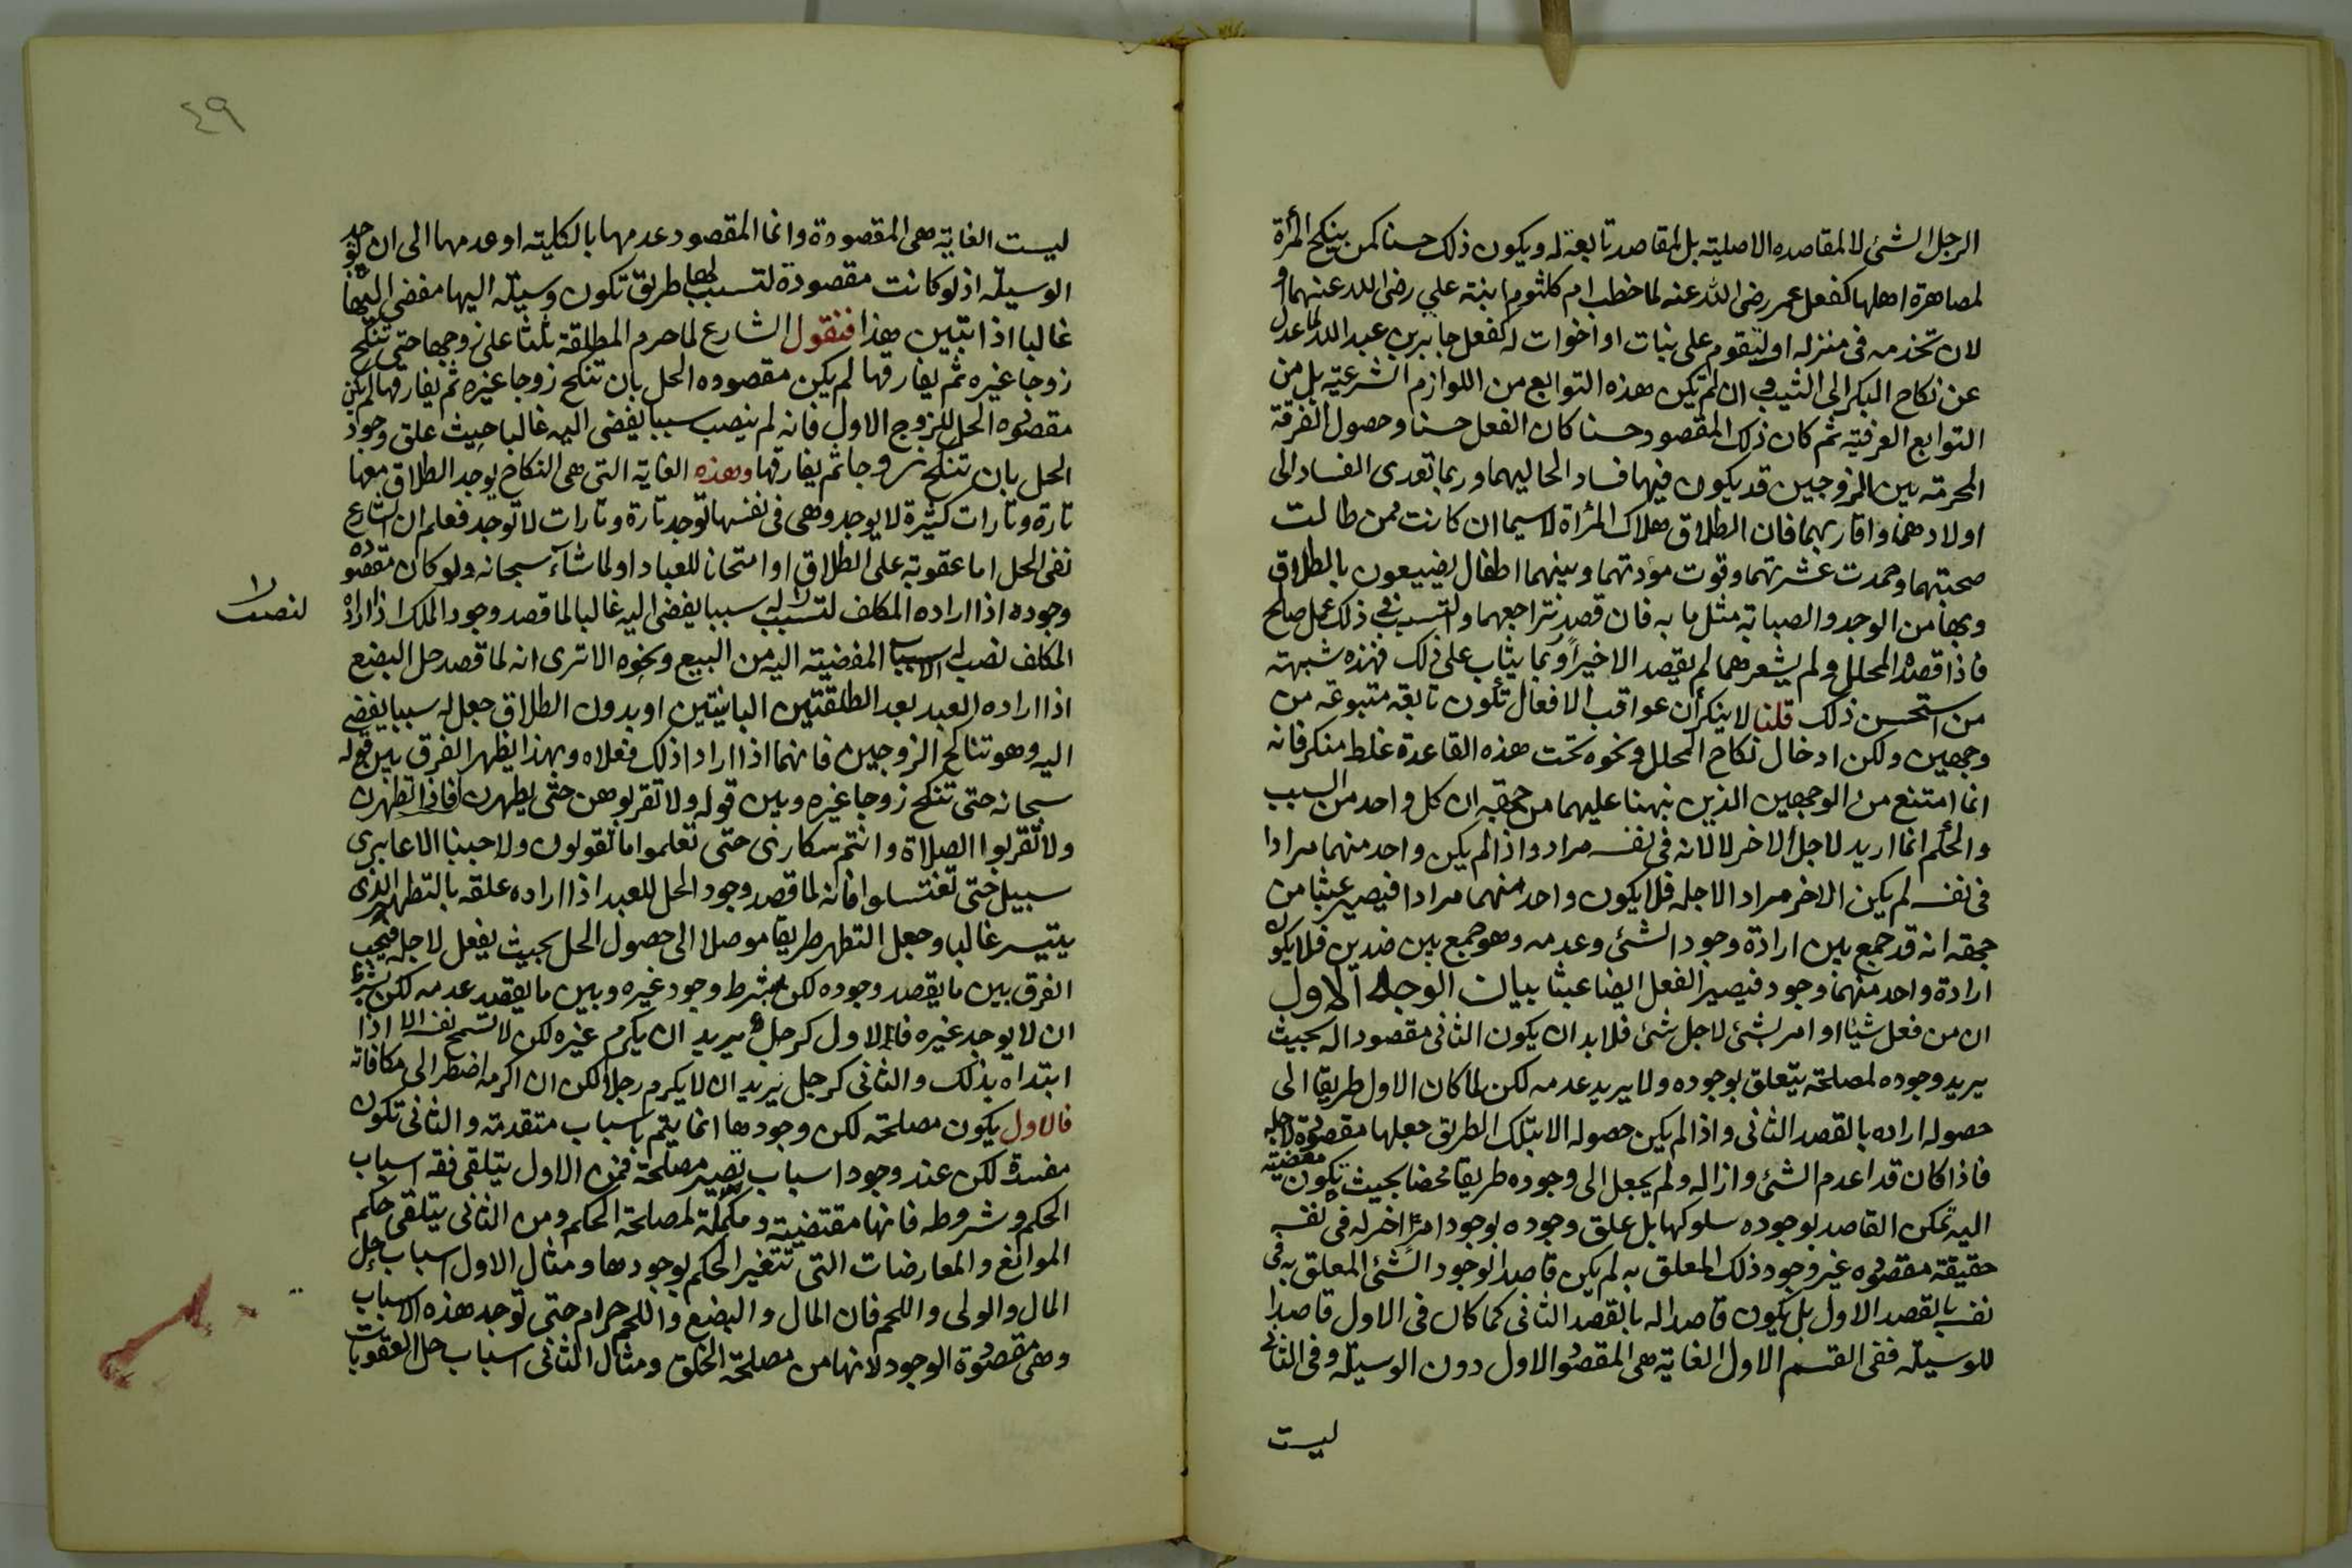 الرجل الشئ لا لمقاصده الاصلية بل لمقاصد تابعة له ويكون ذلك حسنا كمن ينكح المرأة
لمصاهرة اهلها كفعل عمر رضى الله عنه لما خطب ام كلثوم ابنة علي رضى الله عنهما او
لان تخدمه فى منزله او لتقوم على بنات او اخوات له كفعل جابر بن عبد الله لما عدل
عن نكاح البكر الى الثيب وان لم تكن هذه التوابع من اللوازم الشرعية بل من
التوابع العرفية ثم كان ذلك المقصود حسنا كان الفعل حسنا وحصول الفرقة
المحرمة بين الزوجين قد يكون فيها فساد لحاليهما وربما تعدى الفساد الى
اولادهما واقاربهما فان الطلاق هلاك المرأة لاسيما ان كانت ممن طالت
صحبتهما وحمدت عشرتهما وقوت مودتهما وبينهما اطفال يضيعون بالطلاق
وبها من الوجد والصبابة مثل ما به فان قصد تراجعهما والتسبب فى ذلك عمل صالح
فاذا قصد المحلل ولم يشعرهما لم يقصد الا خيرا وربما يثاب على ذلك فهذه شبهة
من استحسن ذلك قلنا لا ينكر أن عواقب الافعال تكون تابعة متبوعة من
وجهين ولكن ادخال نكاح المحلل ونحوه تحت هذه القاعدة غلط منكر فانه
انما امتنع من الوجهين الذين نبهنا عليهما من جهة ان كل واحد من السبب
والحكم انما اريد لاجل الاخر لا لانه فى نفسه مراد واذا لم يكن واحد منهما مرادا
فى نفسه لم يكن الاخر مراد الاجله فلا يكون واحد منهما مرادا فيصير عبثا من
جهة انه قد جمع بين ارادة وجود الشئ وعدمه وهو جمع بين ضدين فلا يكون
ارادة واحد منهما وجود فيصير الفعل ايضا عبثا بيان الوجه الاول
ان من فعل شيئا او امر بشئ لاجل شئ فلابد ان يكون الثانى مقصودا له بحيث
يريد وجوده لمصلحة يتعلق بوجوده ولا يريد عدمه لكن لما كان الاول طريقا الى
حصوله اراده بالقصد الثانى واذا لم يكن حصوله الا بتلك الطريق جعلها مقصودة لاجله
فاذا كان قد اعدم الشئ وازاله ولم يجعل الى وجوده طريقا محضا بحيث تكون مفضية
اليه تمكن القاصد لوجوده سلوكها بل علق وجوده بوجود امر اخر له فى نفسه
حقيقة مقصوده غير وجود ذلك المعلق به لم يكن قاصدا لوجود الشئ المعلق به فى
نفسه بالقصد الاول بل يكون قاصدا له بالقصد الثانى كما كان فى الاول قاصدا
للوسيلة ففى القسم الاول الغاية هى المقصود الاول دون الوسيلة وفى الثانى
ليست
٤٩
ليست الغاية هى المقصودة وانما المقصود عدمها بالكلية او عدمها الى ان توجد
الوسيلة اذ لو كانت مقصودة لتسبب لها طريق تكون وسيلة اليها مفضى اليها
غالبا اذا تبين هذا فنقول الشارع لما حرم المطلقة ثلثا على زوجها حتى تنكح
زوجا غيره ثم يفارقها لم يكن مقصوده الحل بان تنكح زوجا غيره ثم يفارقها لم يكن
مقصوده الحل للزوج الاول فانه لم ينصب سببا يفضى اليه غالبا حيث علق وجود
الحل بان تنكح زوجا ثم يفارقها وهذه الغاية التى هى النكاح يوجد الطلاق معها
تارة وتارات كثيرة لا يوجد وهى فى نفسها توجد تارة وتارات لا توجد فعلم ان الشارع
نفى الحل اما عقوبة على الطلاق او امتحانا للعباد او لما شاء سبحانه ولو كان مقصوده
وجوده اذا اراده المكلف لتسبب له سببا يفضى اليه غالبا لما قصد وجود الملك اذا اراده
لنصب
المكلف نصب له الاسباب المفضية اليه من البيع ونحوه الا ترى انه لما قصد حل البضع
اذا اراده العبد بعد الطلقتين البائنتين او بدون الطلاق جعل له سببا يفضى
اليه وهو تناكح الزوجين فانهما اذا ارادا ذلك فعلاه وبهذا يظهر الفرق بين قوله
سبحانه حتى تنكح زوجا غيره وبين قوله ولا تقربوهن حتى يطهرن فاذا تطهرن
ولا تقربوا الصلاة وانتم سكارى حتى تعلموا ما تقولون ولا جنبا الا عابرى
سبيل حتى تغتسلوا فانه لما قصد وجود الحل للعبد اذا اراده علقه بالتطهر الذى
يتيسر غالبا وجعل التطهر طريقا موصلا الى حصول الحل بحيث يفعل لاجله فيجب
الفرق بين ما يقصد وجوده لكن بشرط وجود غيره وبين ما يقصد عدمه لكن بشرط
ان لا يوجد غيره فالاول كرجل يريد ان يكرم غيره لكن لا تسمح نفسه الا اذا
ابتداه بذلك والثانى كرجل يريد ان لا يكرم رجلا لكن ان اكرمه اضطر الى مكافاته
فالاول يكون مصلحة لكن وجودها انما يتم باسباب متقدمة والثانى تكون
مفسدة لكن عند وجود اسباب تصير مصلحة فمن الاول يتلقى فقه اسباب
الحكم وشروطه فانها مقتضية ومكملة لمصلحة الحكم ومن الثانى يتلقى حكم
الموانع والمعارضات التى تتغير الحكم بوجودها ومثال الاول اسباب حل
المال والولى واللحم فان المال والبضع واللحم حرام حتى توجد هذه الاسباب
وهى مقصودة الوجود لانها من مصلحة الخلق ومثال الثانى اسباب حل العقوبات